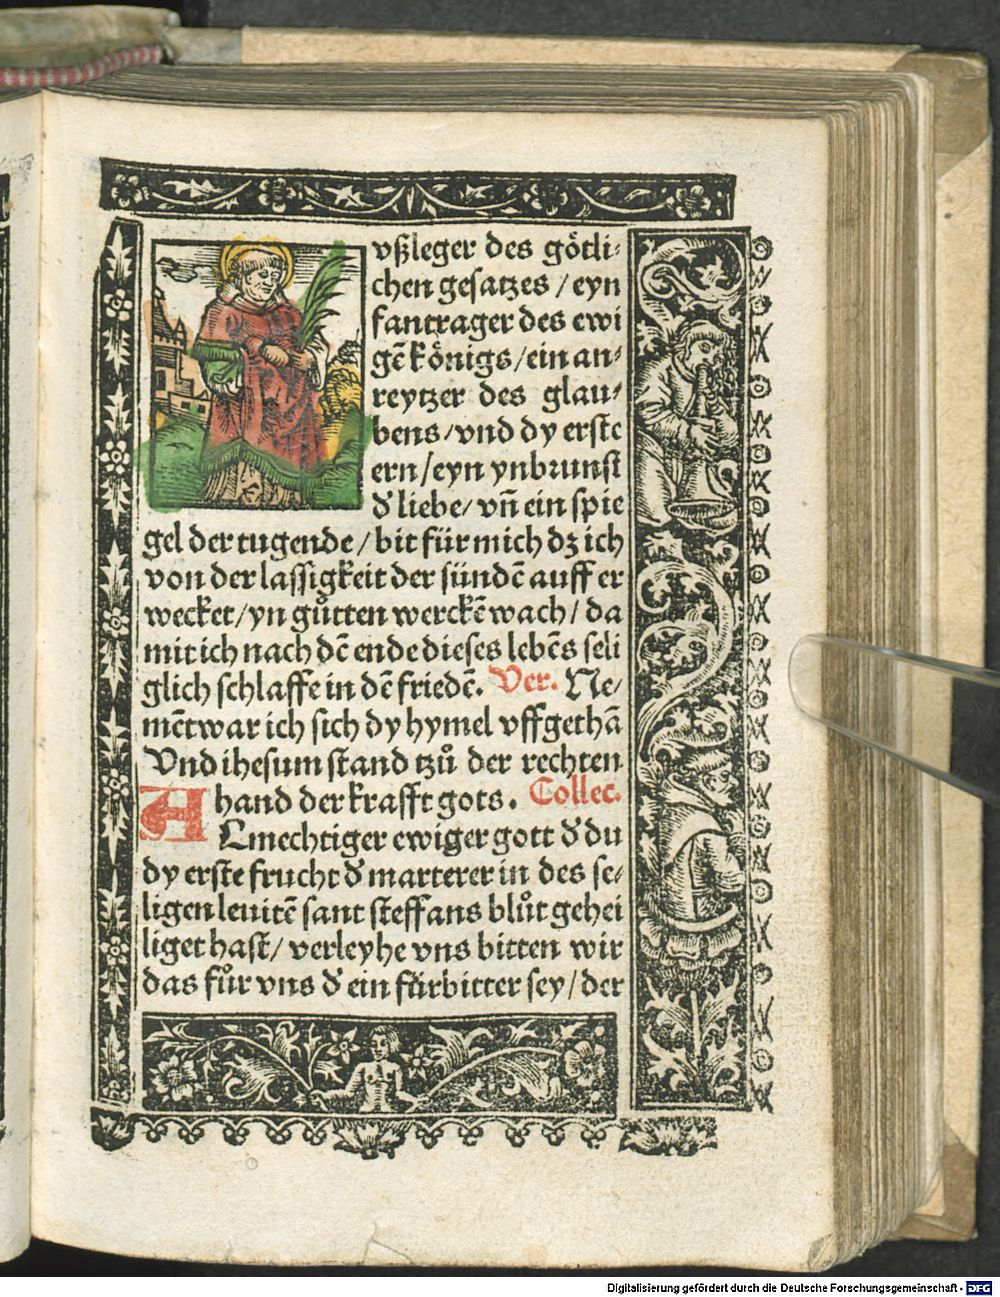 vßleger des götli⸗
chen gesatzes / eyn
fantrager des ewi
gē kőnigs / ein an⸗
reytzer des glau⸗
bens / vnd dy erste
ern / eyn ynbrunst
đ liebe / vn̄ ein spie
gel der tugende / bit für mich dz ich
von der lassigkeit der sündē auff er
wecket / yn gůtten werckē wach / da
mit ich nach dē ende dieses lebēs seli
glich schlaffe in dē friedē. Ver. Ne⸗
mēt war ich sich dy hymel vffgethā
Vnd ihesum stand tzů der rechten
hand der krafft gots. Collec.
ALmechtiger ewiger gott đ du
dy erste frucht đ marterer in des se⸗
ligen leuitē sant steffans blůt gehei
liget hast / verleyhe vns bitten wir
das fůr vns đ ein fürbitter sey / der
Digitalisierung gefördert durch die Deutsche Forschungsgemeinschaft - DFG